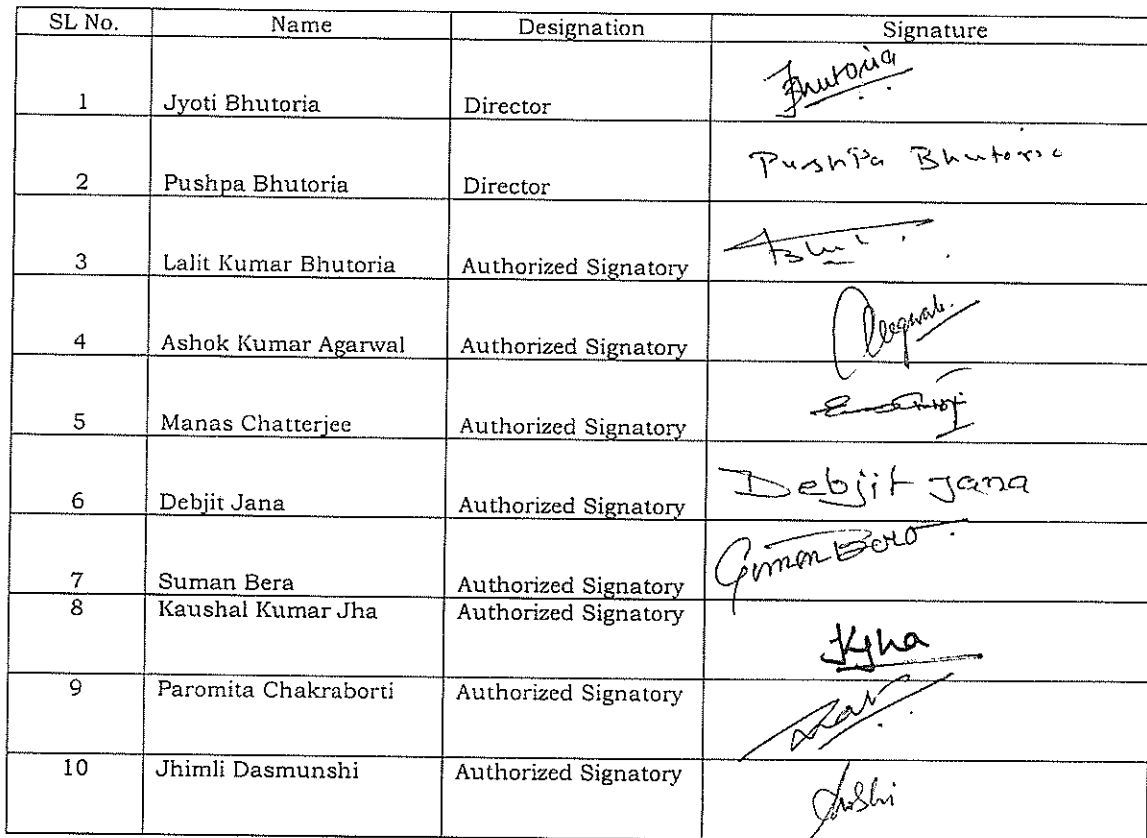 SL No. Name Designation Signature
Bhutoria
1 Jyoti Bhutoria Director
Pushpa Bhutoria
2 Pushpa Bhutoria Director
3 Lalit Kumar Bhutoria Authorized Signatory
4 Ashok Kumar Agarwal Authorized Signatory
5 Manas Chatterjee Authorized Signatory
Debjit Jana
6 Debjit Jana Authorized Signatory
Suman Bera
7 Suman Bera Authorized Signatory
8 Kaushal Kumar Jha Authorized Signatory
KJha
9 Paromita Chakraborti Authorized Signatory
10 Jhimli Dasmunshi Authorized Signatory